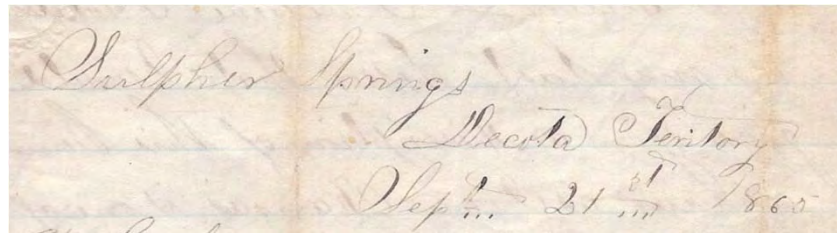 Sulpher Springs
Decota Teritory
Sept. 21st 1865